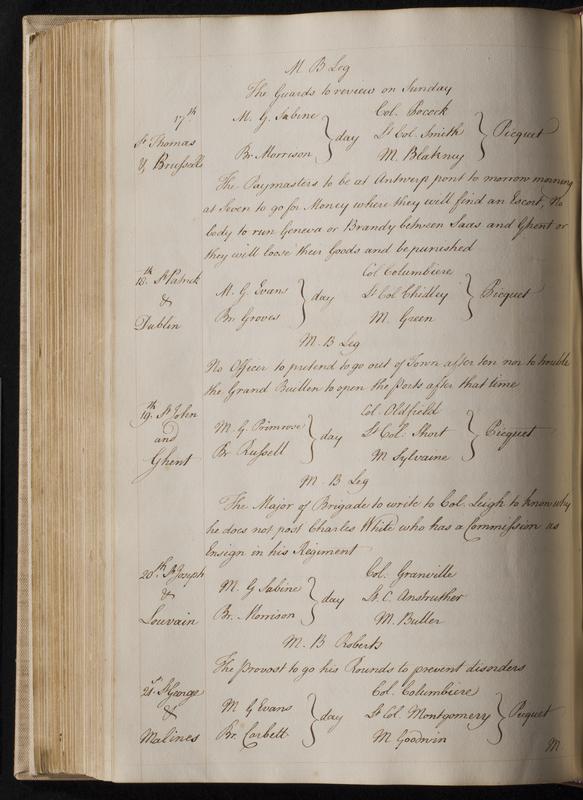 M B Leg
The Guards to review on Sunday
17th
St Thomas
& Brussells
M. G. Sabine
Br Morrison
day
Col. Pocock
Lt Col. Smith
M. Blakney
Picquet
The Paymasters to be at Antwerp port to morrow morning
at Seven to go for Money where they will find an Escort, No
body to run Geneva or Brandy between Saas and Ghent or
they will loose their Goods and be punished
18th St Patrick
&
Dublin
M. G. Evans
Br. Groves
day
Col Columbiere
Lt Col Chidley
M. Green
Picquet
M. B Leg
No Officer to pretend to go out of Town after ten nor to trouble
the Grand Bailleu to open the Ports after that time
19th St John
and
Ghent
M. G Primrose
Br Russell
day
Col. Oldfield
Lt Col. Short
M Sylvaine
Picquet
M. B Leg
The Major of Brigade to write to Col. Leigh to know why
he does not post Charles White who has a Commission as
Ensign in his Regiment
20th St Joseph
&
Louvain
M. G Sabine
Br. Morrison
day
Col. Granville
Lt C. Anstruther
M. Butler
M. B Roberts
The Provost to go his Rounds to prevent disorders
21st St George
&
Malines
M G Evans
Br. Corbett
day
Col. Columbiere
Lt Col. Montgomery
M Goodwin
Picquet
M